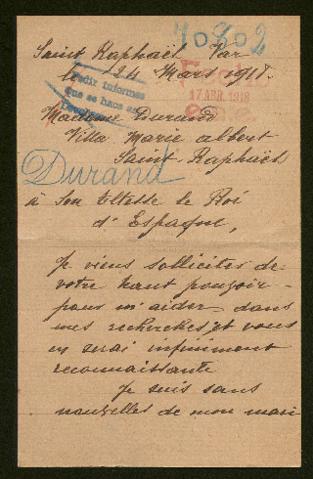 70802
Saint Raphaël Var
le 24 Mars 1918.
Pedir informes
que se haga
17 ABR. 1918
Madame Durand
Villa Marie Albert
Saint Raphaël
Durand
à Son Altesse le Roi
d'Espagne,
Je viens solliciter de
votre haut pouvoir
pour m'aider dans
mes recherches, et vous
en serai infiniment
reconnaissante
Je suis sans
nouvelles de mon mari